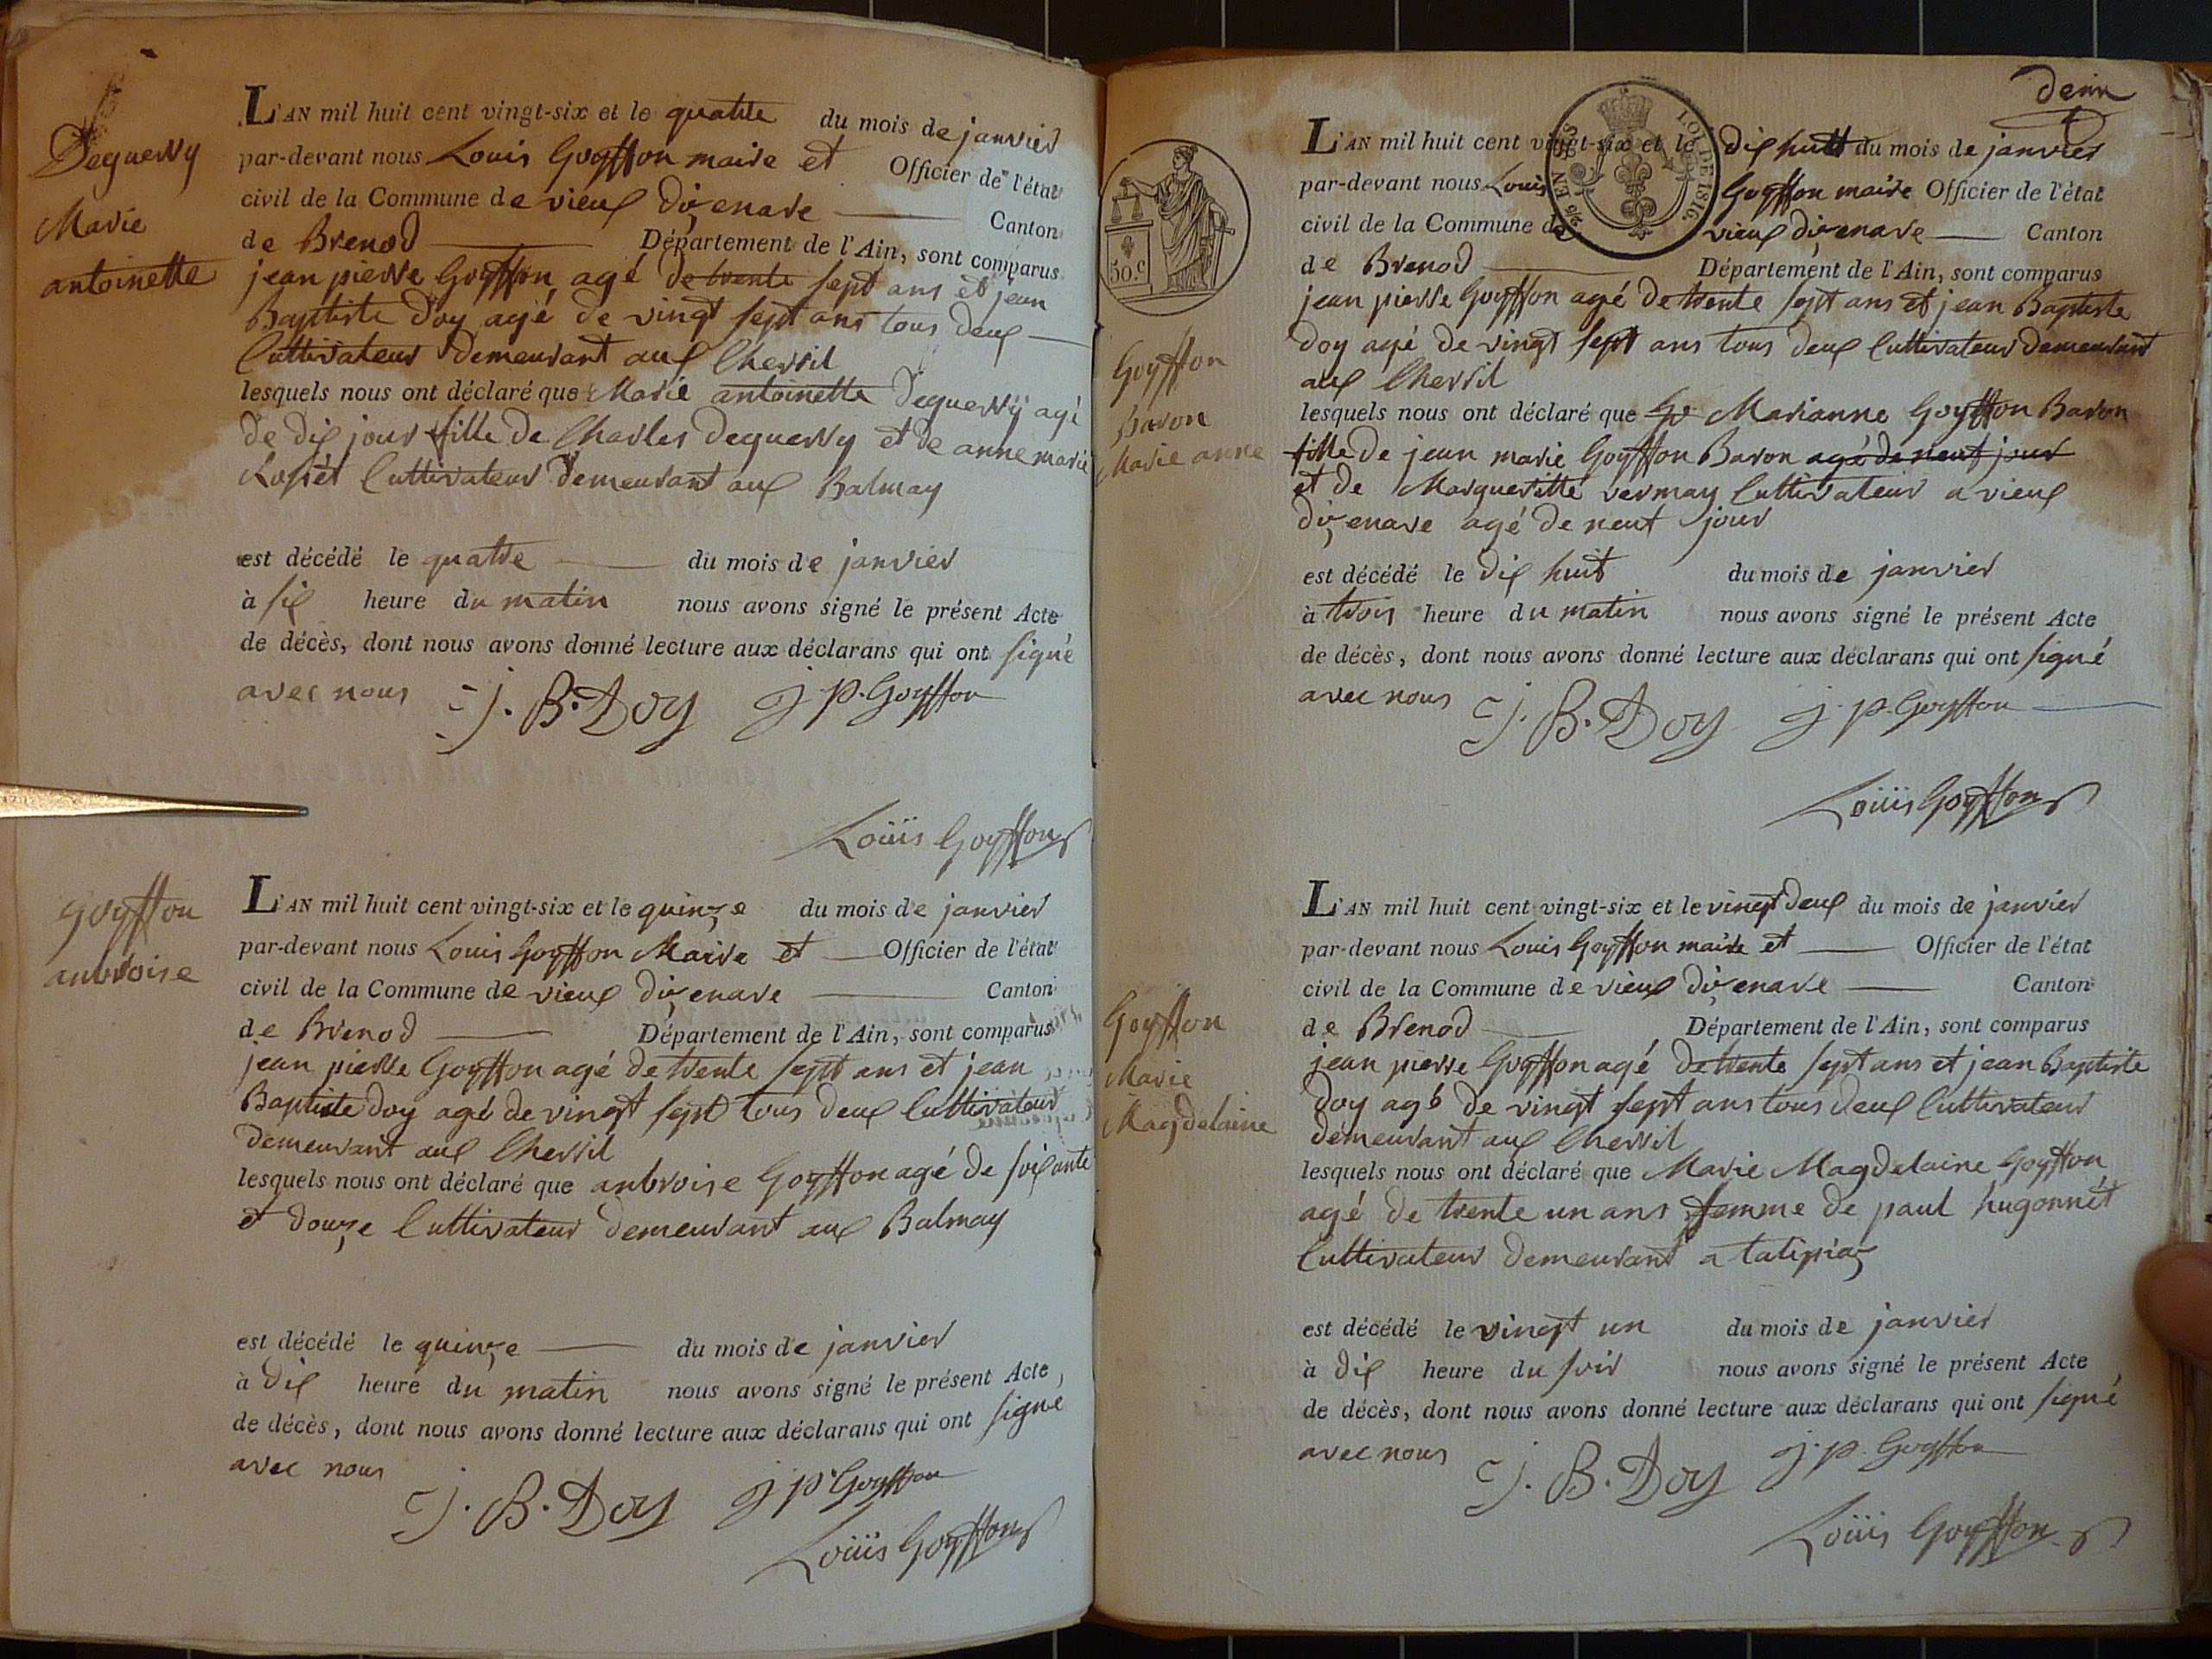 Deguerry
Marie
antoinette
L'AN mil huit cent vingt-six et le quatre du mois de janvier
par-devant nous Louis Goyffon maire et Officier de l'état
civil de la Commune de vieux dizenave Canton
de Brenod Département de l'Ain, sont comparus
jean pierre Goyffon agé de trente sept ans et jean
Baptiste Doy agé de vingt sept ans tous deux
Cultivateur demeurant aux Chevril
lesquels nous ont déclaré que Marie antoinette Deguerry agé
de dix jour fille de Charles Deguerry et de anne marie
Cultivateur demeurant aux Balmay
est décédé le quatre du mois de janvier
à six heure du matin nous avons signé le présent Acte
de décès, dont nous avons donné lecture aux déclarans qui ont signé
avec nous J. B. Doy j p. Goyffon
Loüis Goyffon
Goyffon
anbroise
L'AN mil huit cent vingt-six et le quinze du mois de janvier
par-devant nous Louis Goyffon Maire et Officier de l'état
civil de la Commune de vieux dizenave Canton
de Brenod Département de l'Ain, sont comparus
jean pierre Goyffon agé de trente sept ans et jean
Baptiste Doy agé de vingt sept tous deux Cultivateur
demeurant aux Chevril
lesquels nous ont déclaré que anbroise Goyffon agé de soixante
et douze Cultivateur demeurant aux Balmay
est décédé le quinze du mois de janvier
à dix heure du matin nous avons signé le présent Acte
de décès, dont nous avons donné lecture aux déclarans qui ont signé
avec nous
J. B. Doy j p. Goyffon
Loüis Goyffon
LOI DE 1816
50.c
Goyffon
Baron
Marie anne
L'AN mil huit cent vingt-six et le dix huit du mois de janvier
par-devant nous Louis Goyffon maire Officier de l'état
civil de la Commune de vieux dizenave Canton
de Brenod Département de l'Ain, sont comparus
jean pierre Goyffon agé de trente sept ans et jean Baptiste
Doy agé de vingt sept ans tous deux Cultivateur demeurant
aux Chevril
lesquels nous ont déclaré que Marianne Goyffon Baron
fille de jean marie Goyffon Baron agé de neuf jour
et de Marguerette vermay Cultivateur a vieux
dizenave agé de neuf jour
est décédé le dix huit du mois de janvier
à trois heure du matin nous avons signé le présent Acte
de décès, dont nous avons donné lecture aux déclarans qui ont signé
avec nous J. B. Doy j. p. Goyffon
Loüis Goyffon
Goyffon
Marie
Magdelaine
L'AN mil huit cent vingt-six et le vingt deux du mois de janvier
par-devant nous Louis Goyffon maire et Officier de l'état
civil de la Commune de vieux dizenave Canton
de Brenod Département de l'Ain, sont comparus
jean pierre Goyffon agé de trente sept ans et jean Baptiste
Doy agé de vingt sept ans tous deux Cultivateur
demeurant aux Chevril
lesquels nous ont déclaré que Marie Magdelaine Goyffon
agé de trente un ans femme de paul hugonnét
Cultivateur demeurant a
est décédé le vingt un du mois de janvier
à dix heure du soir nous avons signé le présent Acte
de décès, dont nous avons donné lecture aux déclarans qui ont signé
avec nous J. B. Doy j. p. Goyffon
Loüis Goyffon